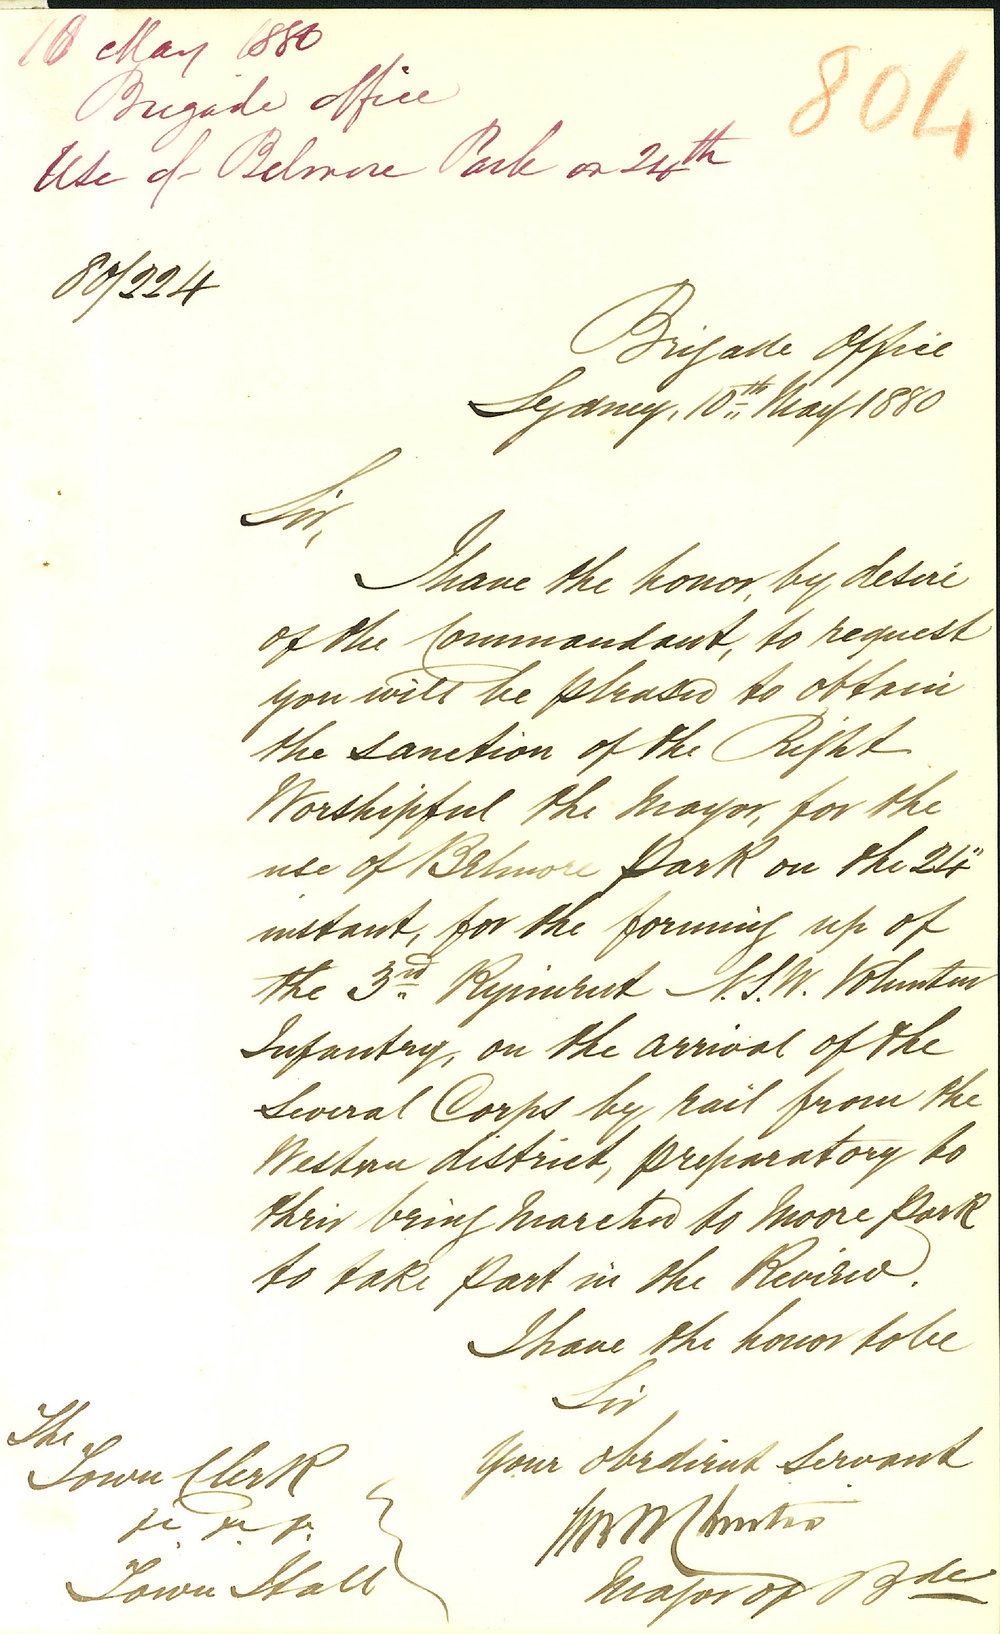 10 May 1880
804
Brigade office
Use of Belmore Park on 24th
80/224
Brigade Office
Sydney, 10th May 1880
Sir,
I have the honor, by desire
of the Commandant, to request
you will be pleased to obtain
the sanction of the Right
Worshipful the Mayor, for the
use of Belmore Park on the 24"
instant, for the forming up of
the 3rd Regiment N.S.W. Volunteer
Infantry, on the arrival of the
Several Corps by rail from the
Western district, preparatory to
their being marched to Moore Park
to take part in the Review.
I have the honor to be
Sir
Your obedient servant
Major of Bde
The
Town Clerk
Town Hall